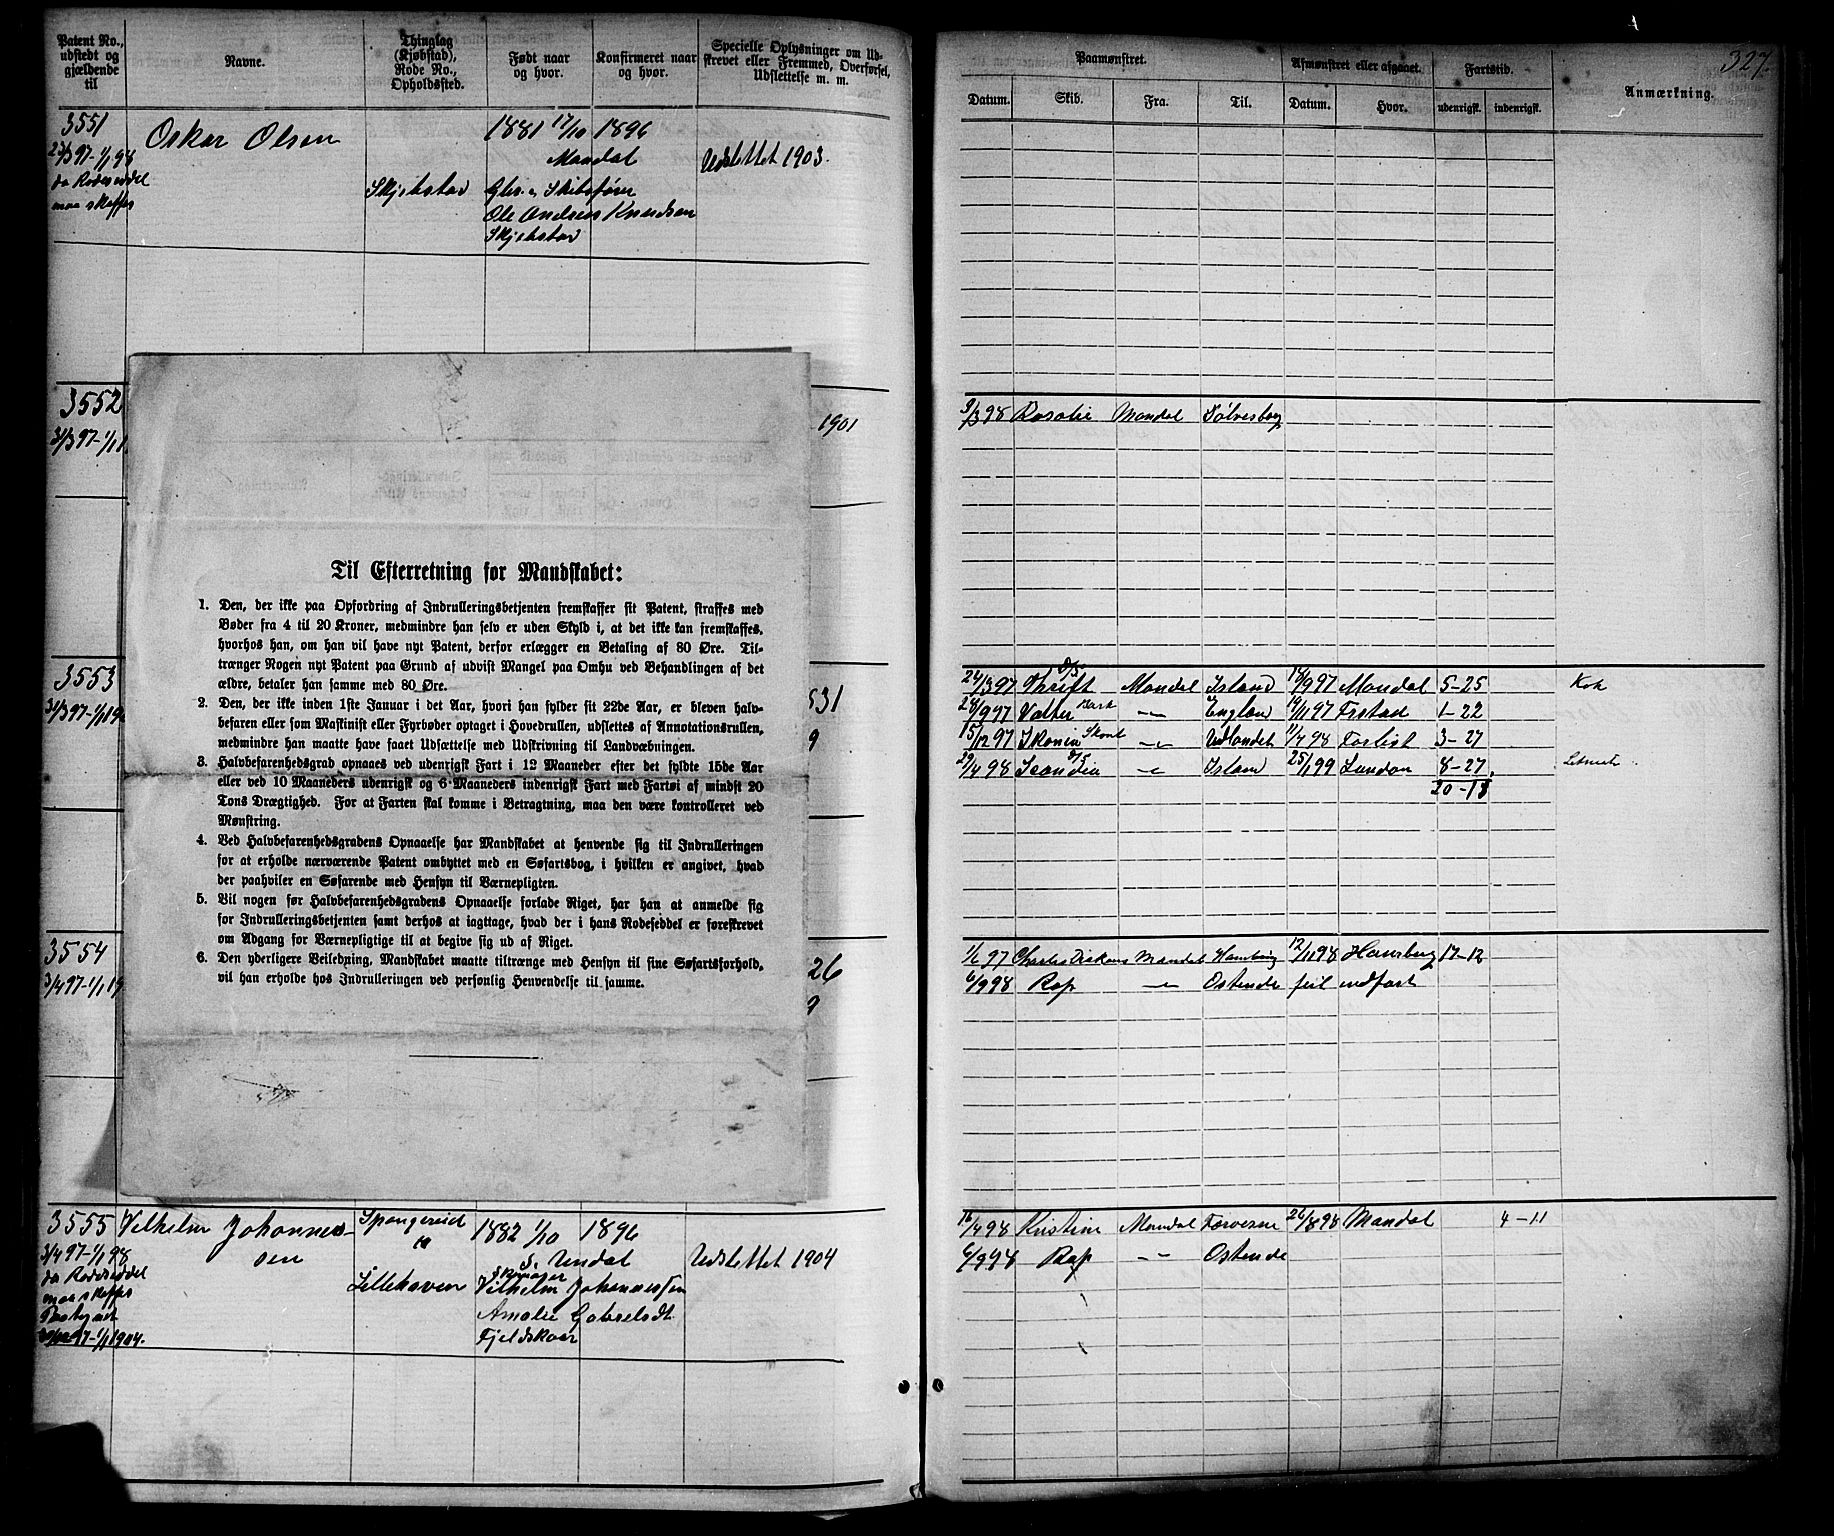 Patent No., udstedt og gjældende til
Navne.
Thinglag (Kjøbstad), Rode No., Opholdssted.
Født naar og hvor.
Konfirmeret naar og hvor.
Specielle Oplysninger om Udskrevet eller Fremmed, Overførsel, Udslettelse m. m.
3551 Oskar Olsen 1881 17/10 1896
23/3 97-1/1 98 Mandal Udslettet 1903.
da Rodeseddel Skjebstad
maa skaffes Ole Andreas Knudsen
Skjebstad
3552
31/3 97-1/1 1901
3553
31/3 97-1/1 19 531
9
3554
3/4 97-1/1 19 26
9
Til Efterretning for Mandskabet:
1. Den, der ikke paa Opfordring af Indrulleringsbetjenten fremskaffer sit Patent, straffes med
Bøder fra 4 til 20 Kroner, medmindre han selv er uden Skyld i, at det ikke kan fremskaffes,
hvorhos han, om han vil have nyt Patent, derfor erlægger en Betaling af 80 Øre. Til-
trænger Nogen nyt Patent paa Grund af udvist Mangel paa Omhu ved Behandlingen af det
ældre, betaler han samme med 80 Øre.
2. Den, der ikke inden 1ste Januar i det Aar, hvori han fylder sit 22de Aar, er bleven halv-
befaren eller som Maskinist eller Fyrbøder optaget i Hovedrullen, udslettes af Annotationsrullen,
medmindre han maatte have faaet Udsættelse med Udskrivning til Landvæbningen.
3. Halvbefarenhedsgrad opnaaes ved udenrigsk Fart i 12 Maaneder efter det fyldte 15de Aar
eller ved 10 Maaneders udenrigsk og 6 Maaneders indenrigsk Fart med Fartøi af mindst 20
Tons Drægtighed. For at Farten skal komme i Betragtning, maa den være kontrolleret ved
Mønstring.
4. Ved Halvbefarenhedsgradens Opnaaelse har Mandskabet at henvende sig til Indrulleringen
for at erholde nærværende Patent ombyttet med en Søfartsbog, i hvilken er angivet, hvad
der paahviler en Søfarende med Hensyn til Værnepligten.
5. Vil nogen før Halvbefarenhedsgradens Opnaaelse forlade Riget, har han at anmelde sig
for Indrulleringsbetjenten samt derhos at iagttage, hvad der i hans Rodeseddel er foreskrevet
om Adgang for Værnepligtige til at begive sig ud af Riget.
6. Den yderligere Veiledning, Mandskabet maatte tiltrænge med Hensyn til sine Søfartsforhold,
vil han erholde hos Indrulleringen ved personlig Henvendelse til samme.
3555 Vilhelm Johannes- Spangereid 1882 1/10 1896
3/4 97-1/1 98 sen S. Undal Udslettet 1904
da Rodeseddel Lillehaven Vilhelm Johannessen
maa skaffes Amalie Gabrielsdt.
Fjeldskaar
97-1/1 1904.
327.
Paamønstret. Afmønstret eller afgaaet. Fartstid. Anmærkning.
Datum. Skib. Fra. Til. Datum. Hvor. udenrigsk. indenrigsk.
9/3 98 Rosalie Mandal Sølvesborg
24/3 97 Thrift D/S. Mandal Island 18/9 97 Mandal 5-25 Kok
28/9 97 Valter Bark -"- England 19/11 97 1-22
15/12 97 Skonn -"- Udlandet 11/4 98 3-27
29/4 98 Scandia D/S -"- Island 25/1 99 London 8-27
20-13
1/6 97 Charles Dickens Mandal Hamburg 12/11 98 Hamburg 17-12
6/9 98 Rap -"- Ostende feil indført
16/4 98 Kristine Mandal 26/8 98 Mandal 4-11
6/9 98 Rap -"- Ostende